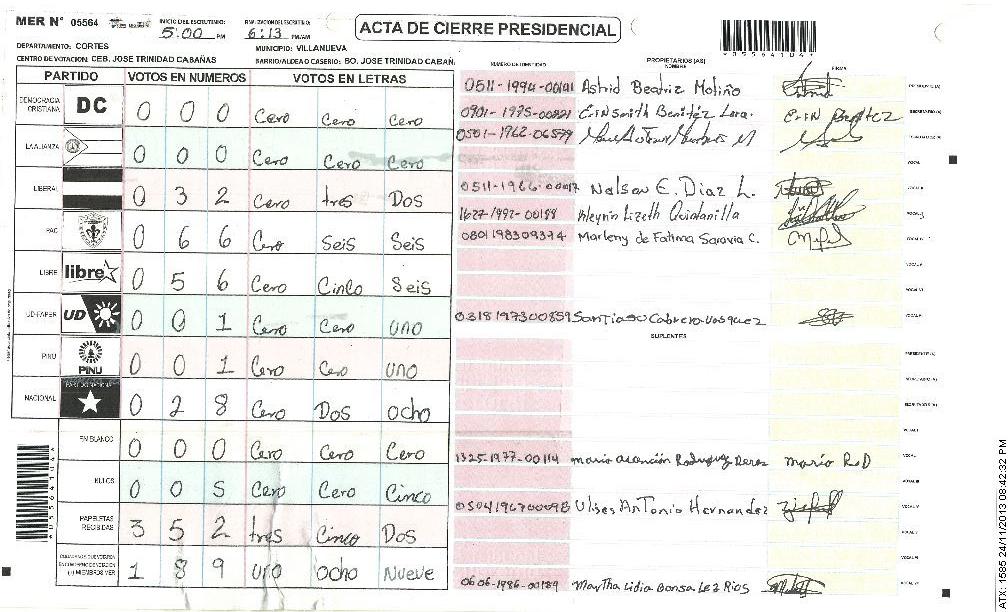 MER N° 05564 INICIO DEL ESCRUTINIO: 5:00 PM FINALIZACION DEL ESCRUTINIO: 6:13 PM/AM
ACTA DE CIERRE PRESIDENCIAL
DEPARTAMENTO: CORTES MUNICIPIO: VILLANUEVA
CENTRO DE VOTACION: CEB. JOSE TRINIDAD CABAÑAS BARRIO/ALDEA O CASERIO: BO. JOSE TRINIDAD CABAÑ.
PARTIDO VOTOS EN NUMEROS VOTOS EN LETRAS
DEMOCRACIA CRISTIANA DC 0 0 0 Cero Cero Cero
LA ALIANZA 0 0 0 Cero Cero Cero
LIBERAL 0 3 2 Cero tres Dos
PAC 0 6 6 Cero Seis Seis
LIBRE libre 0 5 6 Cero Cinco Seis
UD-FAPER UD 0 0 1 Cero Cero uno
PINU PINU 0 0 1 Cero Cero uno
NACIONAL PARTIDO NACIONAL 0 2 8 Cero Dos ocho
EN BLANCO 0 0 0 Cero Cero Cero
NULOS 0 0 5 Cero Cero Cinco
PAPELETAS RECIBIDAS 3 5 2 tres Cinco Dos
(+) MIEMBROS MER 1 8 9 uno ocho Nueve
NUMERO DE IDENTIDAD PROPIETARIOS (AS) NOMBRE FIRMA
0511-1994-00141 Astrid Beatriz Moliño PRESIDENTE (A)
0901-1975-00821 Erin Smith Benitez Lara. Erin Benitez SECRETARIO (A)
0501-1962-06579
VOCAL
0511-1966-00017 Nelson E. Diaz L.
1627-1992-00188 Meynin Lizeth Quintanilla
0801198309374 Marleny de Fatima Saravia C.
0318197300859 Santiago Cabrera Vasquez
SUPLENTES
PRESIDENTE (A)
SECRETARIO (A)
1325-1977-00114 mario asención Rodriguez Mario RoD
0504196700098 Ulises Antonio Hernandez
0606-1986-00189 Martha Lidia Gonsalez Rios
*35564104*
ATX: 1585 24/11/2013 08:42:32 PM